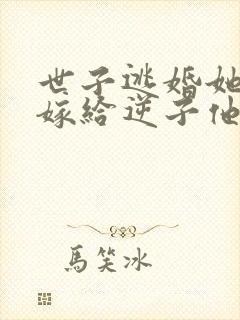 世子逃婚她
嫁给逆子他
馬笑冰